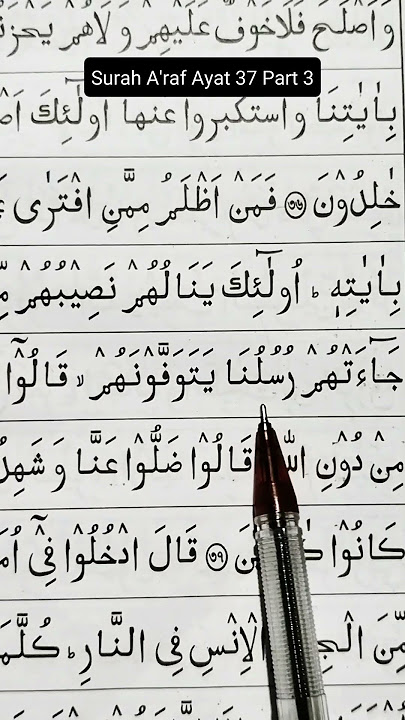 وَاَصْلَحَ فَلَاخَوْفٌ عَلَيْهِمْ وَلَاهُمْ
Surah A'raf Ayat 37 Part 3
بِاٰيٰتِنَا وَاسْتَكْبَرُوْا عَنْهَا اُولٰٓئِكَ
خٰلِدُوْنَ ۝۳۶ فَمَنْ اَظْلَمُ مِمَّنِ افْتَرٰى
بِاٰيٰتِهٖ ؕ اُولٰٓئِكَ يَنَالُهُمْ نَصِيْبُهُمْ
جَآءَتْهُمْ رُسُلُنَا يَتَوَفَّوْنَهُمْ ۙ قَالُوْٓا
مِنْ دُوْنِ اللّٰهِ قَالُوْا ضَلُّوْا عَنَّا وَ
كَانُوْا ۝۳۷ قَالَ ادْخُلُوْا فِيْٓ
مِّنَ الْاِنْسِ فِى النَّارِ ؕ كُلَّمَا